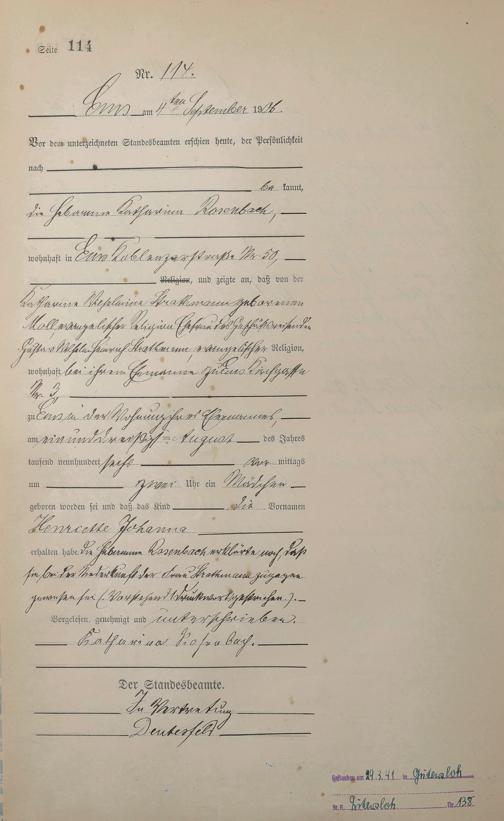 Seite 114
Nr. 114.
Ems am 4ten September 1906.
Vor dem unterzeichneten Standesbeamten erschien heute, der Persönlichkeit
nach
be kannt,
die Hebamme Katharina Rosenbach,
wohnhaft in Ems, Koblenzerstraße Nr. 50,
Religion, und zeigte an, daß von der
Katharine Strathmann geborenen
Moll, evangelischer Religion, Ehefrau des
Wilhelm Heinrich Strathmann, evangelischer Religion,
wohnhaft bei ihrem Ehemanne zu Ems Kirchgasse
Nr. 3,
zu Ems in der Wohnung ihres Ehemannes,
am einunddreißigsten August des Jahres
tausend neunhundert sechs Vor mittags
um zwei Uhr ein Mädchen
geboren worden sei und daß das Kind die Vornamen
Henriette Johanna
erhalten habe. Die Hebamme Rosenbach erklärte noch, daß
sie bei der Niederkunft der Frau Strathmann zugegen
gewesen sei. (Vorstehend 1 Druckwort gestrichen). –
Vorgelesen, genehmigt und unterschrieben.
Katharina Rosenbach.
Der Standesbeamte.
In Vertretung
Gestorben am 29.3.41 in Gütersloh
Gütersloh Nr. 138